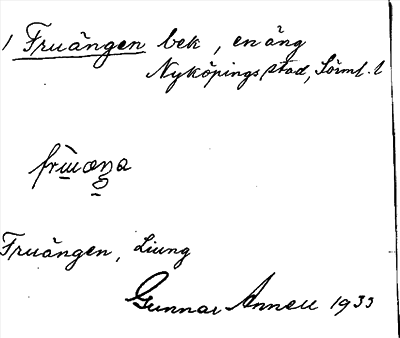 1 Fruängen bek, en äng
Nyköpings stad, Sörml. l
Fruängen, Ljung
Gunnar Annell 1933